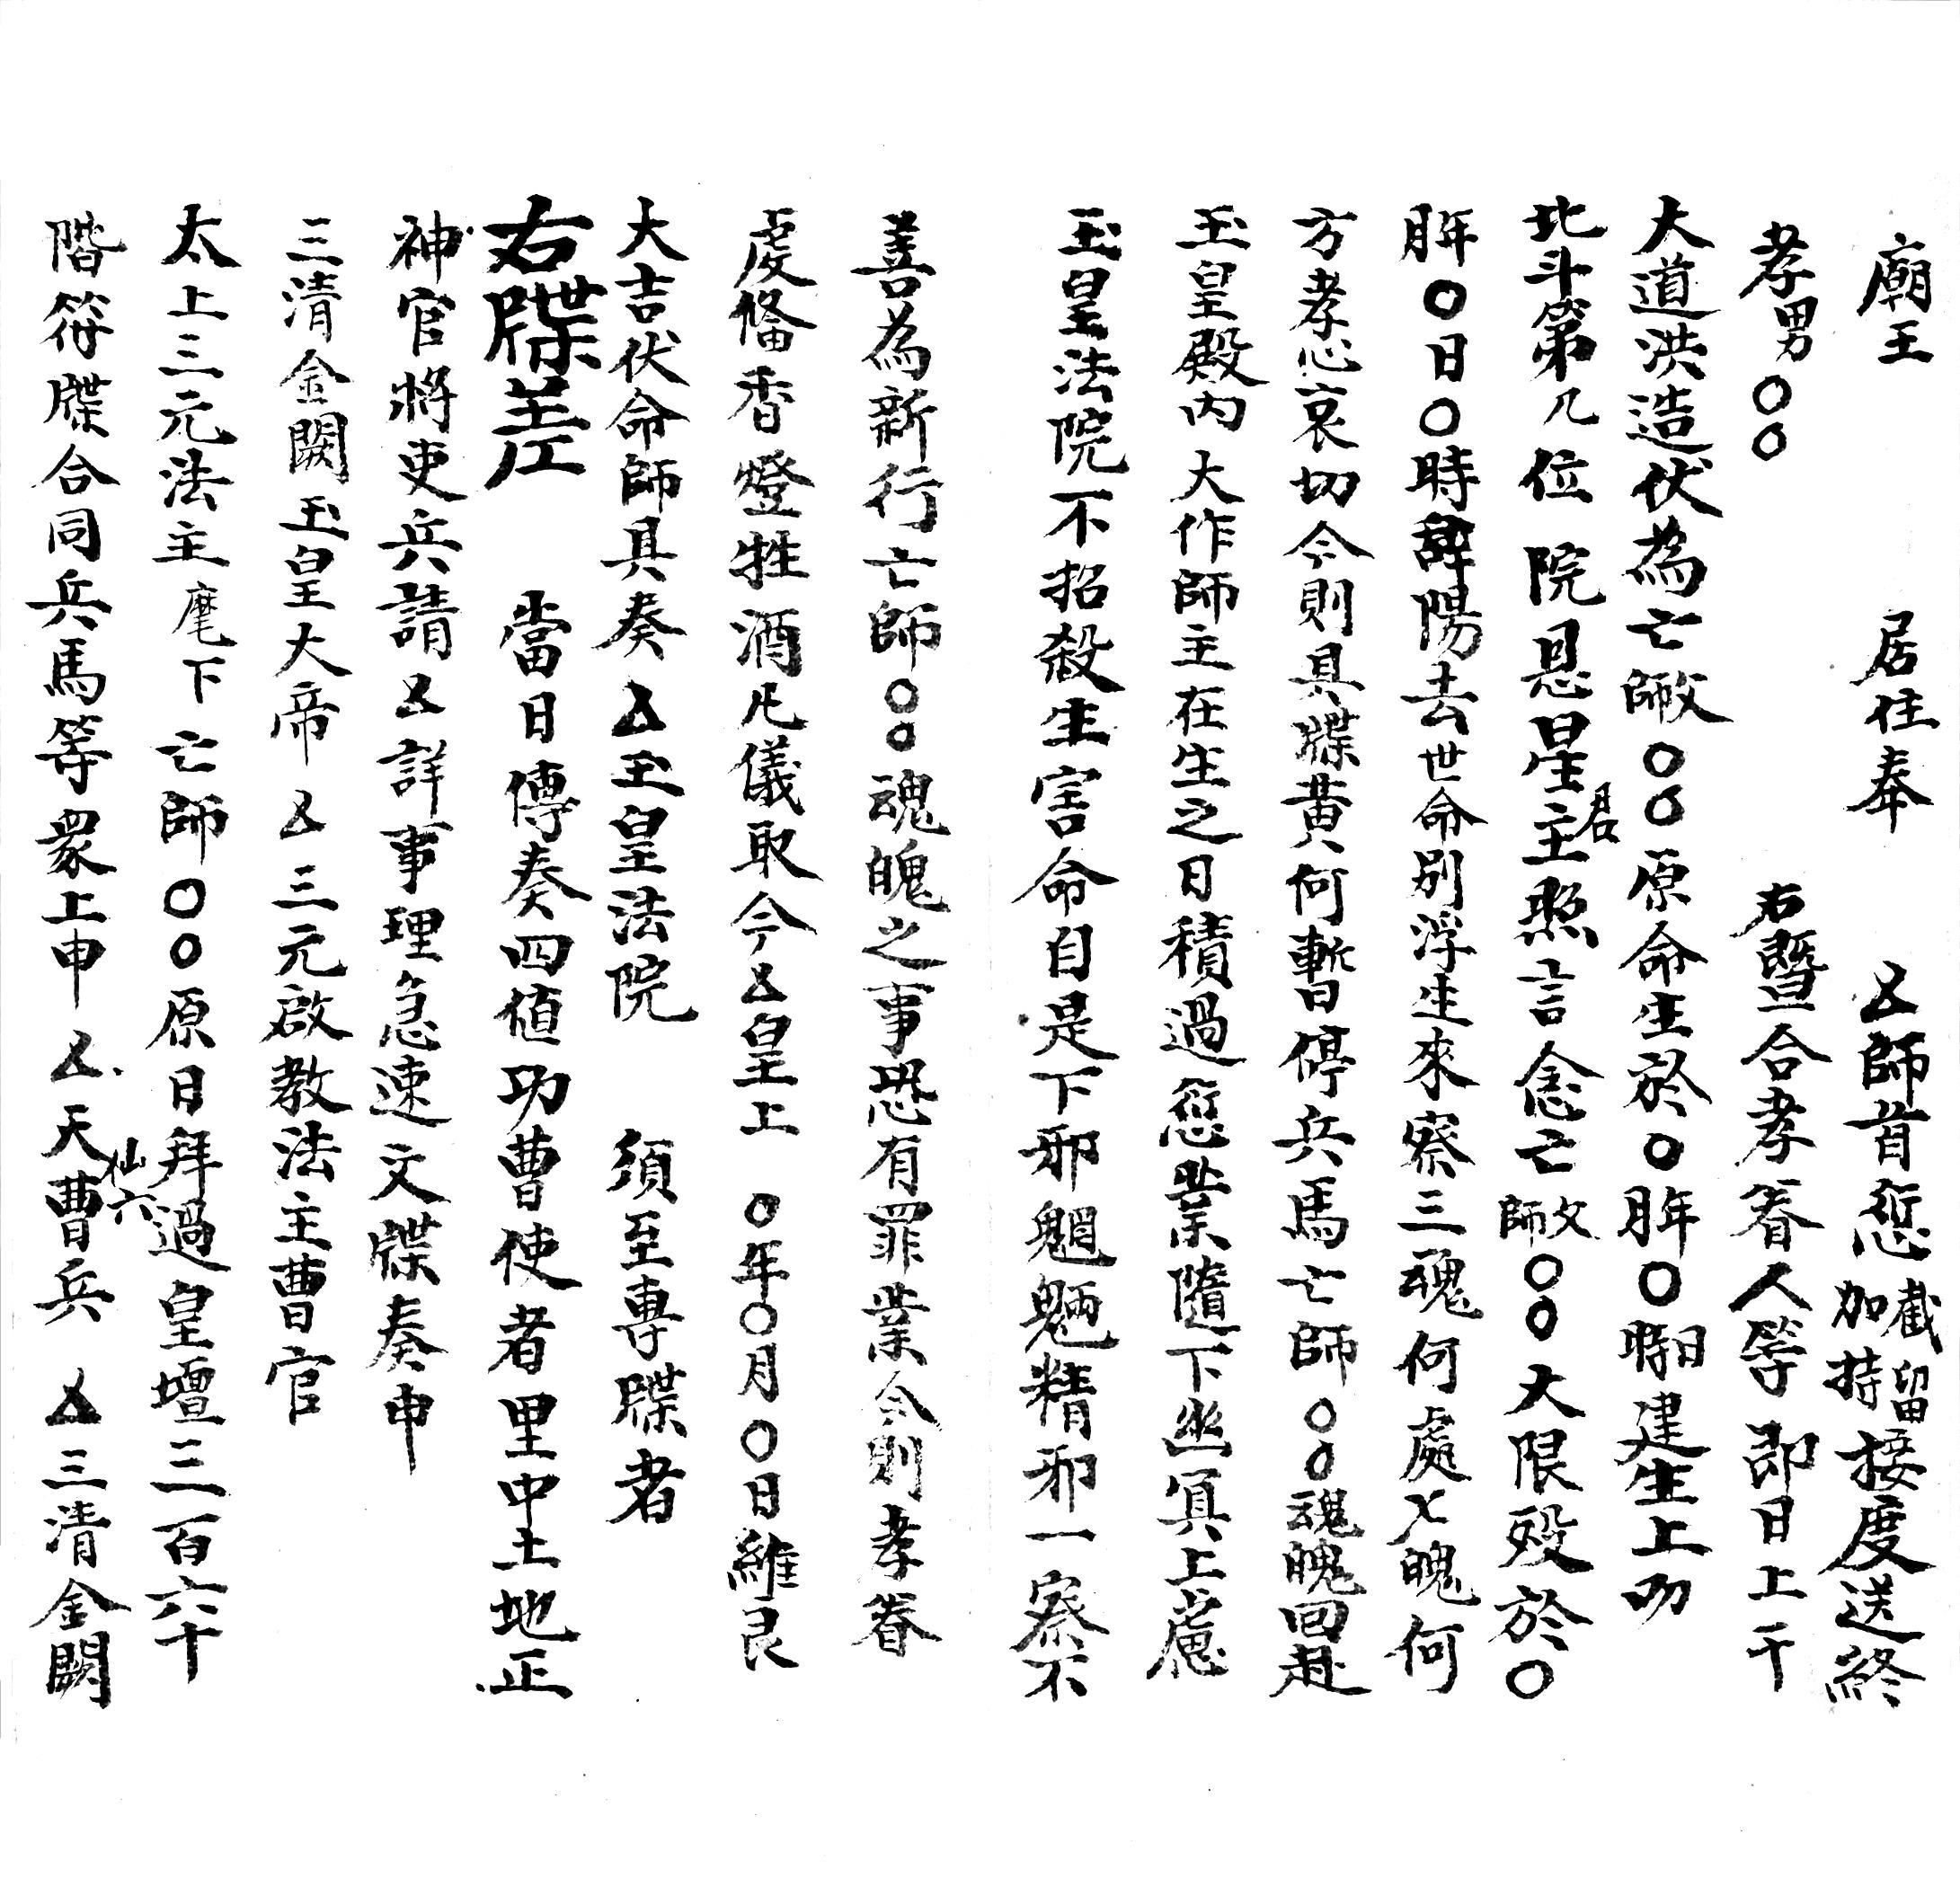 廟王 居住奉 厶師首愆截留加持接度送終
孝男〇〇 右暨合孝眷人等即日上干
大道洪造伏為亡師父〇〇原命生於〇年月〇日時建生上叨
北斗第几位院恩星主君照言念亡師父〇〇大限殁於〇
年月〇日〇時辭陽去世命別浮生來察三魂何處七魄何
方孝心哀切今則具牒黄何暫停兵馬亡師〇〇魂魄回赴
玉皇殿內大作師主在生之日積過愆業隨下幽冥上慮
玉皇法院不招殺生害命自是下邪魍魎精邪一察不
善為新行亡師〇〇魂魄之事恐有罪業今則孝眷
虔備香燈牲酒凡儀取今厶皇上 〇年〇月〇日維良
大吉伏命師具奏厶玉皇法院 須至專牒者
右牒差 當日傳奏四值功曹使者里中土地正
神官將吏兵請厶詳事理急速文牒奏申
三清金闕玉皇大帝厶三元啟教法主曹官
太上三元法主麾下亡師〇〇原日拜過皇壇三百六十
階符牒合同兵馬等眾上申厶天仙六曹兵厶三清金闕